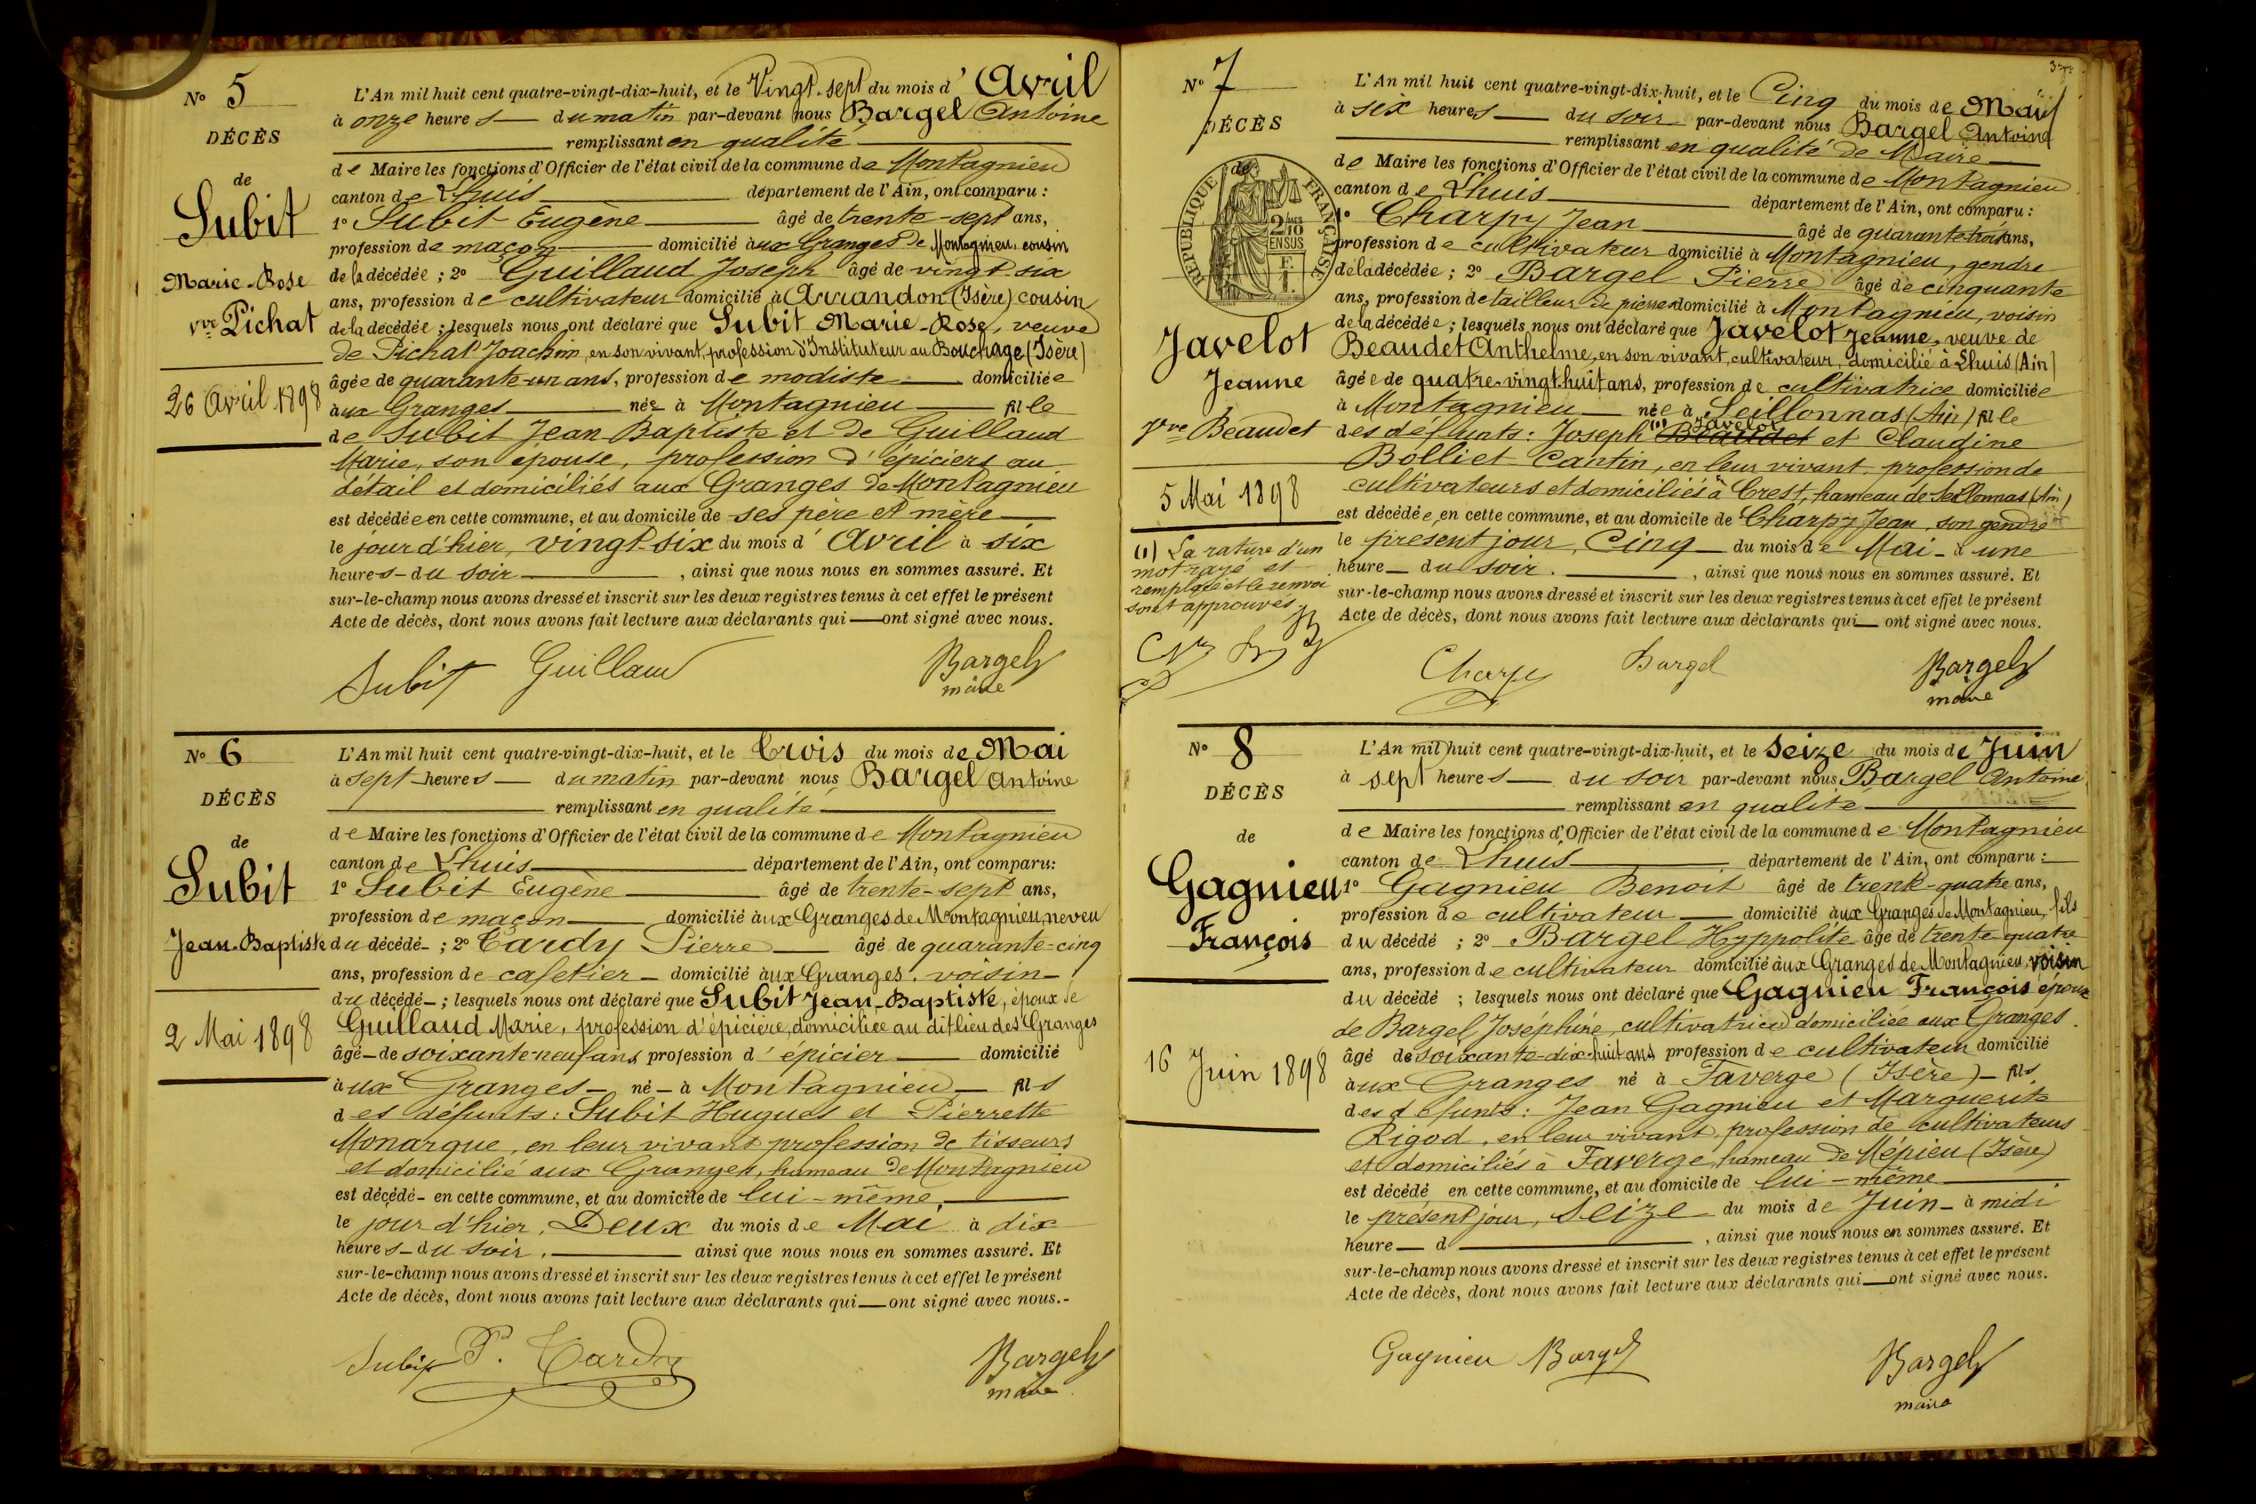 N° 5
DÉCÈS
de
Subit
Marie-Rose
vve Pichat
26 Avril 1898
L'An mil huit cent quatre-vingt-dix-huit, et le Vingt-sept du mois d' Avril
à onze heures du matin par-devant nous Bargel Antoine
remplissant en qualité
de Maire les fonctions d'Officier de l'état civil de la commune de Montagnieu
canton de Lhuis département de l'Ain, ont comparu :
1° Subit Eugène âgé de trente-sept ans,
profession de maçon domicilié aux Granges de Montagnieu, cousin
de la décédée ; 2° Guillaud Joseph âgé de vingt six
ans, profession de cultivateur domicilié à Arrandon (Isère) cousin
de la décédée ; lesquels nous ont déclaré que Subit Marie-Rose, veuve
de Pichat Joachim, en son vivant, profession d'Instituteur au Bouchage (Isère)
âgée de quarante-un ans, profession de modiste domiciliée
aux Granges née à Montagnieu fille
de Subit Jean Baptiste et de Guillaud
Marie, son épouse, profession d'épiciers au
détail et domiciliés aux Granges de Montagnieu
est décédée en cette commune, et au domicile de ses père et mère
le jour d'hier, vingt-six du mois d' Avril à six
heures du soir, ainsi que nous nous en sommes assuré. Et
sur-le-champ nous avons dressé et inscrit sur les deux registres tenus à cet effet le présent
Acte de décès, dont nous avons fait lecture aux déclarants qui ont signé avec nous.
Subit Guillaud Bargel
maire
N° 6
DÉCÈS
de
Subit
Jean-Baptiste
2 Mai 1898
L'An mil huit cent quatre-vingt-dix-huit, et le Trois du mois de Mai
à sept heures du matin par-devant nous Bargel Antoine
remplissant en qualité
de Maire les fonctions d'Officier de l'état civil de la commune de Montagnieu
canton de Lhuis département de l'Ain, ont comparu:
1° Subit Eugène âgé de trente-sept ans,
profession de maçon domicilié aux Granges de Montagnieu, neveu
du décédé ; 2° Tardy Pierre âgé de quarante-cinq
ans, profession de cafetier domicilié aux Granges. voisin
du décédé ; lesquels nous ont déclaré que Subit Jean-Baptiste, époux de
Guillaud Marie, profession d'épicière, domiciliée au dit lieu des Granges
âgé de soixante-neuf ans, profession d' épicier domicilié
aux Granges né à Montagnieu fils
des défunts: Subit Hugues et Pierrette
Monarque, en leur vivant profession de tisseurs
et domicilié aux Granges, hameau de Montagnieu
est décédé en cette commune, et au domicile de lui-même,
le jour d'hier, Deux du mois de Mai à dix
heures du soir, ainsi que nous nous en sommes assuré. Et
sur-le-champ nous avons dressé et inscrit sur les deux registres tenus à cet effet le présent
Acte de décès, dont nous avons fait lecture aux déclarants qui ont signé avec nous.
Subit P. Tardy Bargel
maire
N° 7
DÉCÈS
de
RÉPUBLIQUE FRANÇAISE
2/10 EN SUS
Javelot
Jeanne
Vve Beaudet
5 Mai 1898
(1) La rature d'un
mot rayé et
remplacé et le renvoi
sont approuvés
L'An mil huit cent quatre-vingt-dix-huit, et le Cinq du mois de Mai
à six heures du soir par-devant nous Bargel Antoine
remplissant en qualité de Maire
de Maire les fonctions d'Officier de l'état civil de la commune de Montagnieu
canton de Lhuis département de l'Ain, ont comparu :
1° Charpy Jean âgé de quarante-trois ans,
profession de cultivateur domicilié à Montagnieu, gendre
de la décédée ; 2° Bargel Pierre âgé de cinquante
ans, profession de tailleur de pierres domicilié à Montagnieu, voisin
de la décédée ; lesquels nous ont déclaré que Javelot Jeanne, veuve de
Beaudet Anthelme, en son vivant, cultivateur, domicilié à Lhuis (Ain)
âgée de quatre-vingt huit ans, profession de cultivatrice domiciliée
à Montagnieu née à Seillonnas (Ain) fille
des défunts: Joseph (1) Javelot Beaudet et Claudine
Bolliet Cantin, en leur vivant, profession de
cultivateurs et domiciliés à Crest, hameau de Seillonnas (Ain)
est décédée en cette commune, et au domicile de Charpy Jean, son gendre
le présent jour, Cinq du mois de Mai à une
heure du soir, ainsi que nous nous en sommes assuré. Et
sur-le-champ nous avons dressé et inscrit sur les deux registres tenus à cet effet le présent
Acte de décès, dont nous avons fait lecture aux déclarants qui ont signé avec nous.
Charpy Bargel Bargel
maire
N° 8
DÉCÈS
de
Gagnieu
François
16 Juin 1898
L'An mil huit cent quatre-vingt-dix-huit, et le seize du mois de Juin
à sept heures du soir par-devant nous Bargel Antoine
remplissant en qualité
de Maire les fonctions d'Officier de l'état civil de la commune de Montagnieu
canton de Lhuis département de l'Ain, ont comparu :
1° Gagnieu Benoit âgé de trente-quatre ans,
profession de cultivateur domicilié aux Granges de Montagnieu, fils
du décédé ; 2° Bargel Hyppolite âgé de trente quatre
ans, profession de cultivateur domicilié aux Granges de Montagnieu, voisin
du décédé ; lesquels nous ont déclaré que Gagnieu François époux
de Bargel Joséphine, cultivatrice domiciliée aux Granges.
âgé de soixante-dix-huit ans profession de cultivateur domicilié
aux Granges né à Faverge (Isère) fils
des défunts: Jean Gagnieu et Marguerite
Rigod, en leur vivant, profession de cultivateurs
et domiciliés à Faverge, hameau de Mépieu (Isère)
est décédé en cette commune, et au domicile de lui-même
le présent jour, seize du mois de Juin à midi
heure d , ainsi que nous nous en sommes assuré. Et
sur-le-champ nous avons dressé et inscrit sur les deux registres tenus à cet effet le présent
Acte de décès, dont nous avons fait lecture aux déclarants qui ont signé avec nous.
Gagnieu Bargel Bargel
maire